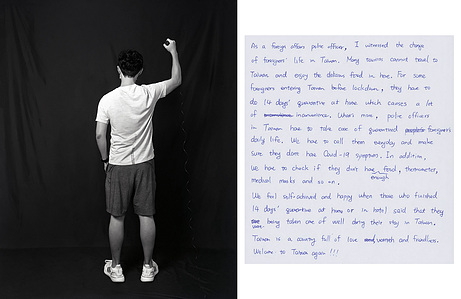 As a foreign affairs police officer, I witnessed the change
of foreigners' life in Taiwan. Many tourists cannot travel to
Taiwan and enjoy the delicious food in here. For some
foreigners entering Taiwan before lockdown, they have to
do 14 days' quarantine at home which causes a lot
of inconvenience. What's more, police officers
in Taiwan have to take care of quarantined foreigners'
daily life. We have to call them everyday and make
sure they don't have Covid-19 symptoms. In addition,
We have to check if they don't have enough food, thermometer,
medical masks and so on.
We feel self-achieved and happy when those who finished
14 days' quarantine at home or in hotel said that they
were being taken care of well during their stay in Taiwan.
Taiwan is a country full of love, warmth and friendliness.
Welcome to Taiwan again !!!